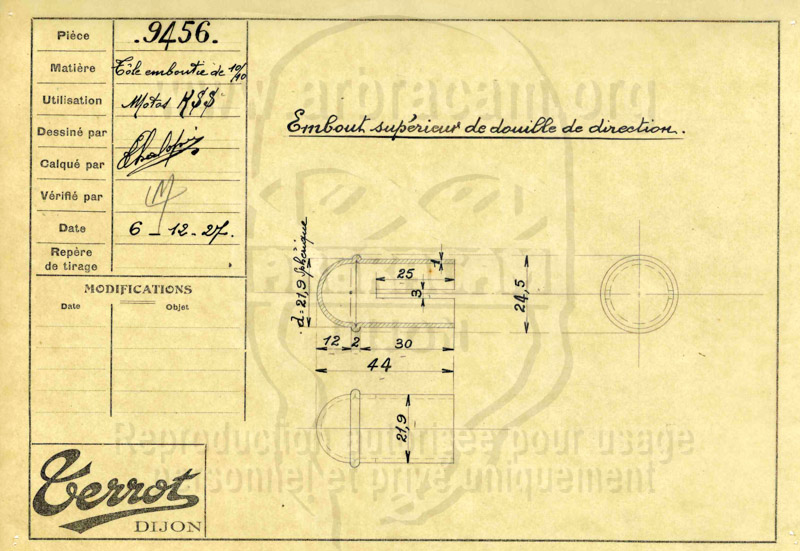 Pièce .9456.
Matière Tôle emboutie de 10/10
Utilisation Motos K$$
Dessiné par
Calqué par
Vérifié par
Date 6 - 12 - 27.
Repère
de tirage
MODIFICATIONS
Date Objet
www.arbracam.org
Embout supérieur de douille de direction.
d = 21,9 Sphérique
1
25
3
24,5
12 2 30
44
21,9
Reproduction autorisée pour usage
personnel et privé uniquement
Terrot
DIJON